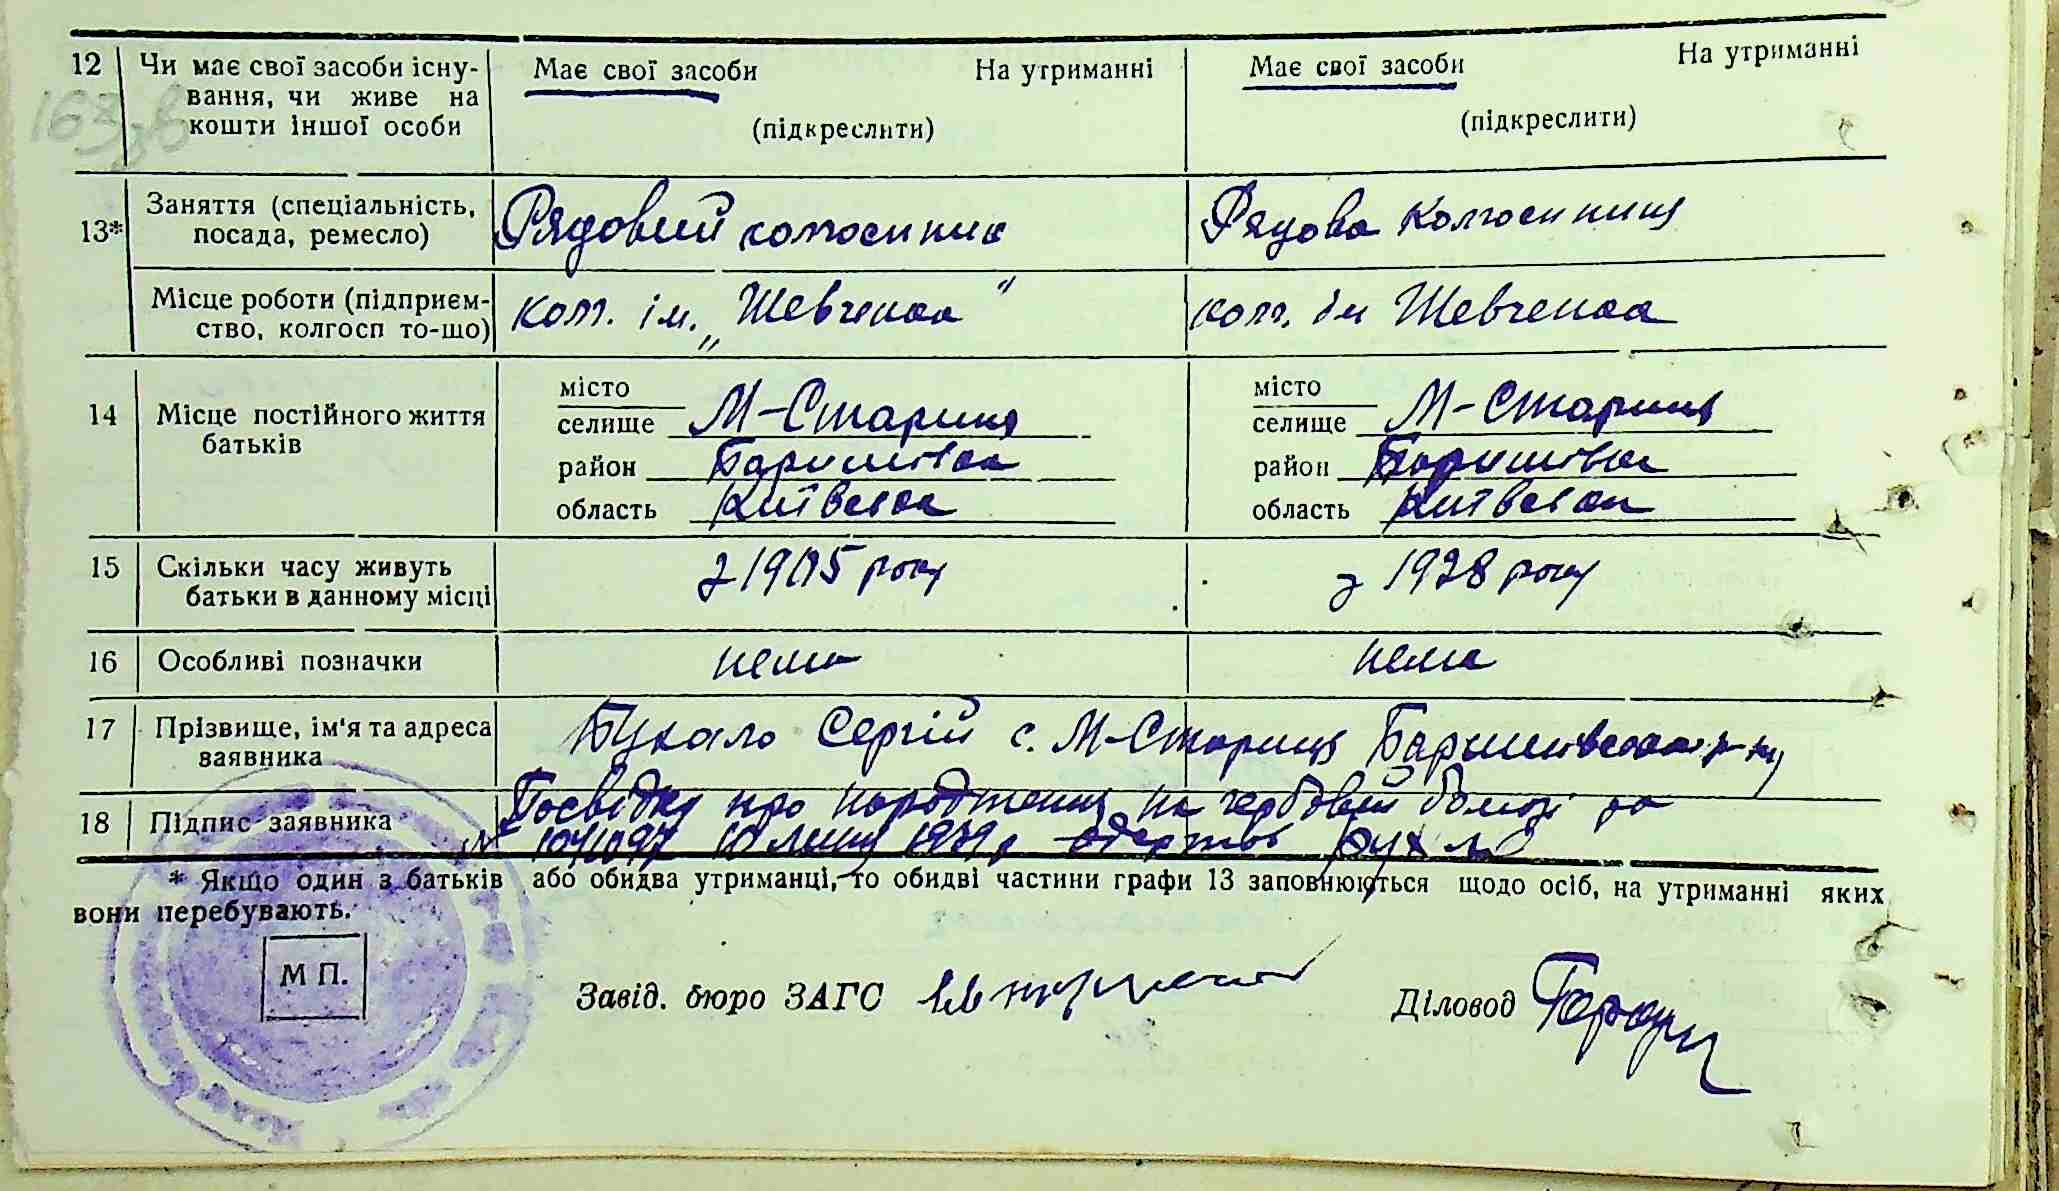 12 Чи має свої засоби існу- Має свої засоби На утриманні Має свої засоби На утриманні
вання, чи живе на
кошти іншої особи (підкреслити) (підкреслити)
13* Заняття (спеціальність, Рядовий колгоспник Рядова колгоспниця
посада, ремесло)
Місце роботи (підприєм- колг. ім. „Шевченка" колг. ім Шевченка
ство, колгосп то-що)
14 Місце постійного життя місто місто
батьків селище М-Стариця селище М-Стариця
район Баришівка район Баришівка
область Київська область Київська
15 Скільки часу живуть з 1905 року з 1928 року
батьки в данному місці
16 Особливі позначки нема нема
17 Прізвище, ім'я та адреса Бухало Сергій с. М-Стариця Баришівського р-ну
заявника
18 Підпис заявника Посвідку про народження на гербовий бланкі за
№ одержав Бухало
* Якщо один з батьків або обидва утриманці, то обидві частини графи 13 заповнюються щодо осіб, на утриманні яких
вони перебувають.
М П.
Завід. бюро ЗАГС Діловод